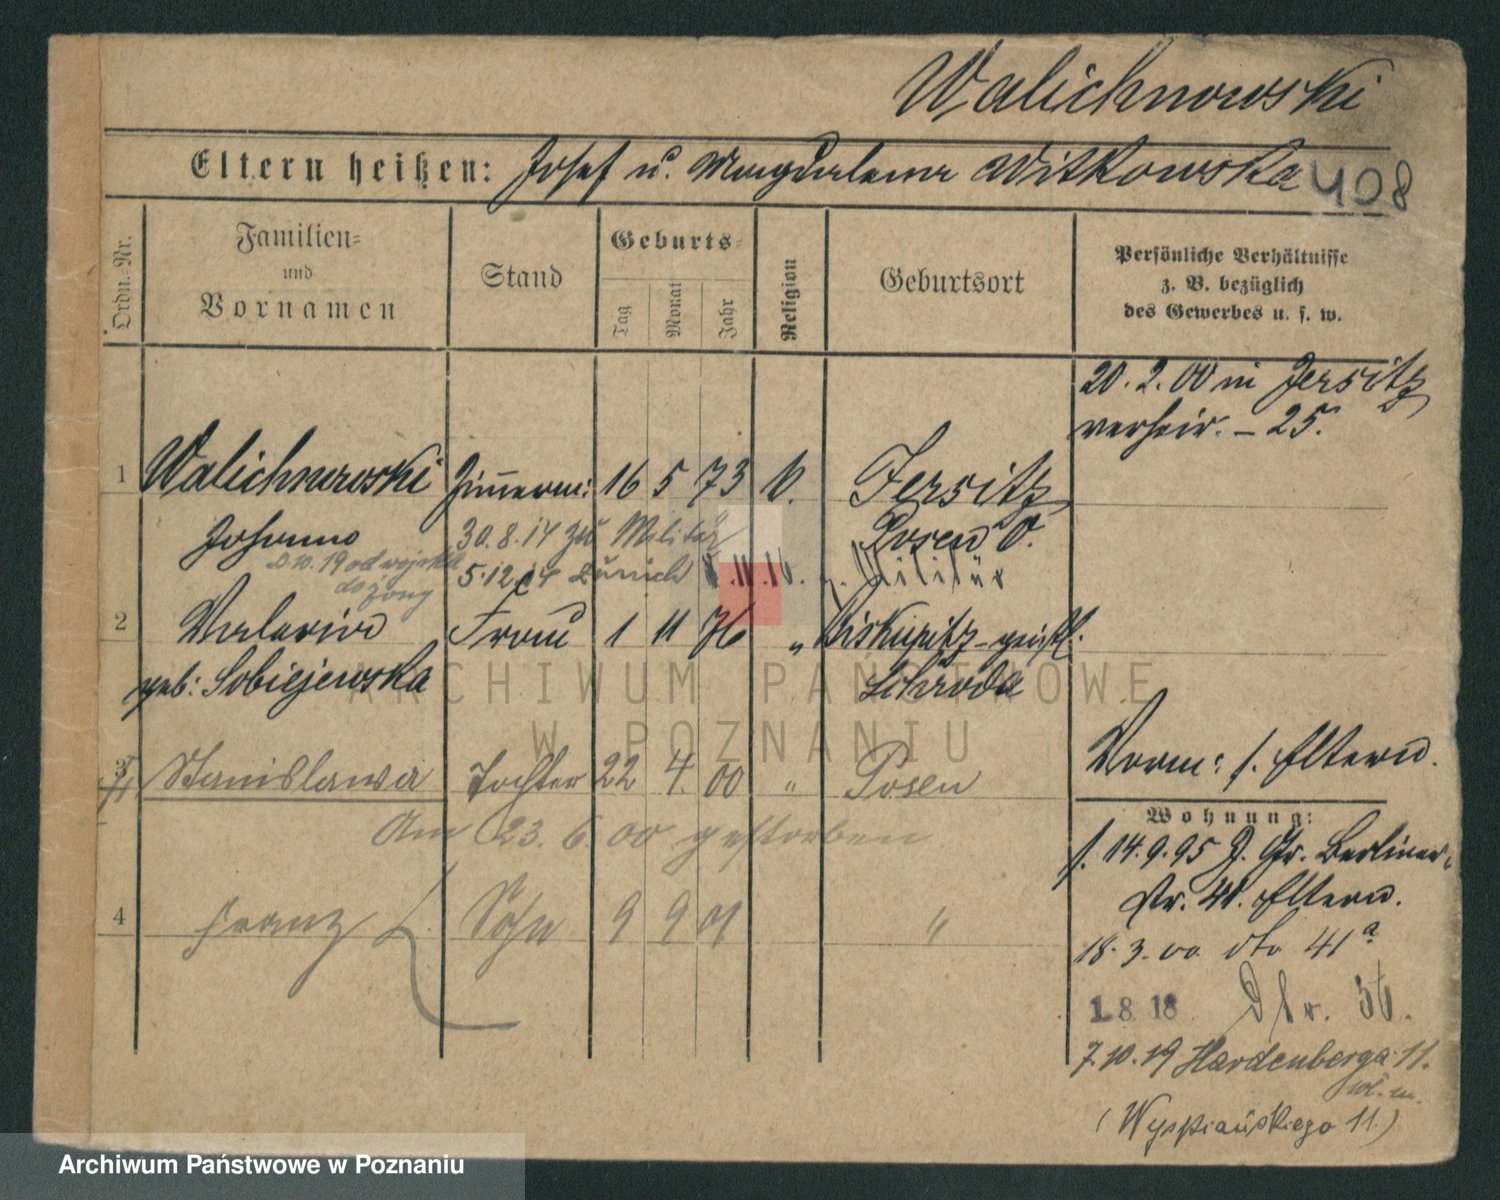 Walichnowski
Eltern heißen: Josef u. Magdalena Witkowska 408
Ordn.-Nr.
Familien-
und
Vornamen
Stand
Geburts-
Tag
Monat
Jahr
Religion
Geburtsort
Persönliche Verhältnisse
z. B. bezüglich
des Gewerbes u. s. w.
20. 2. 00 in Jersitz
verheir. – 25.
1 Walichnowski Zimmerm: 16 5 73 k. Jersitz
Johann 30. 8. 14 zu Militär Posen O.
2.10.19 od wojska 5.12.14 zurück z. Militär
do żony
2 Valeria Frau 1 11 76 " Biskupitz-geistl.
geb: Sobiejewska Schroda
3 Stanislawa Tochter 22 4. 00 " Posen
Am 23. 6. 00 gestorben
4 Franz Sohn 9 9 01 "
Vorm: s. Eltern.
Wohnung:
s. 14.9.95 J. Gr. Berliner-
Str. 41. Eltern.
18. 3. 00 dto 41a
1 8 18 36.
7.10.19 Hardenberga 11.
(Wyspiańskiego 11.)
ARCHIWUM PAŃSTWOWE
W POZNANIU
Archiwum Państwowe w Poznaniu